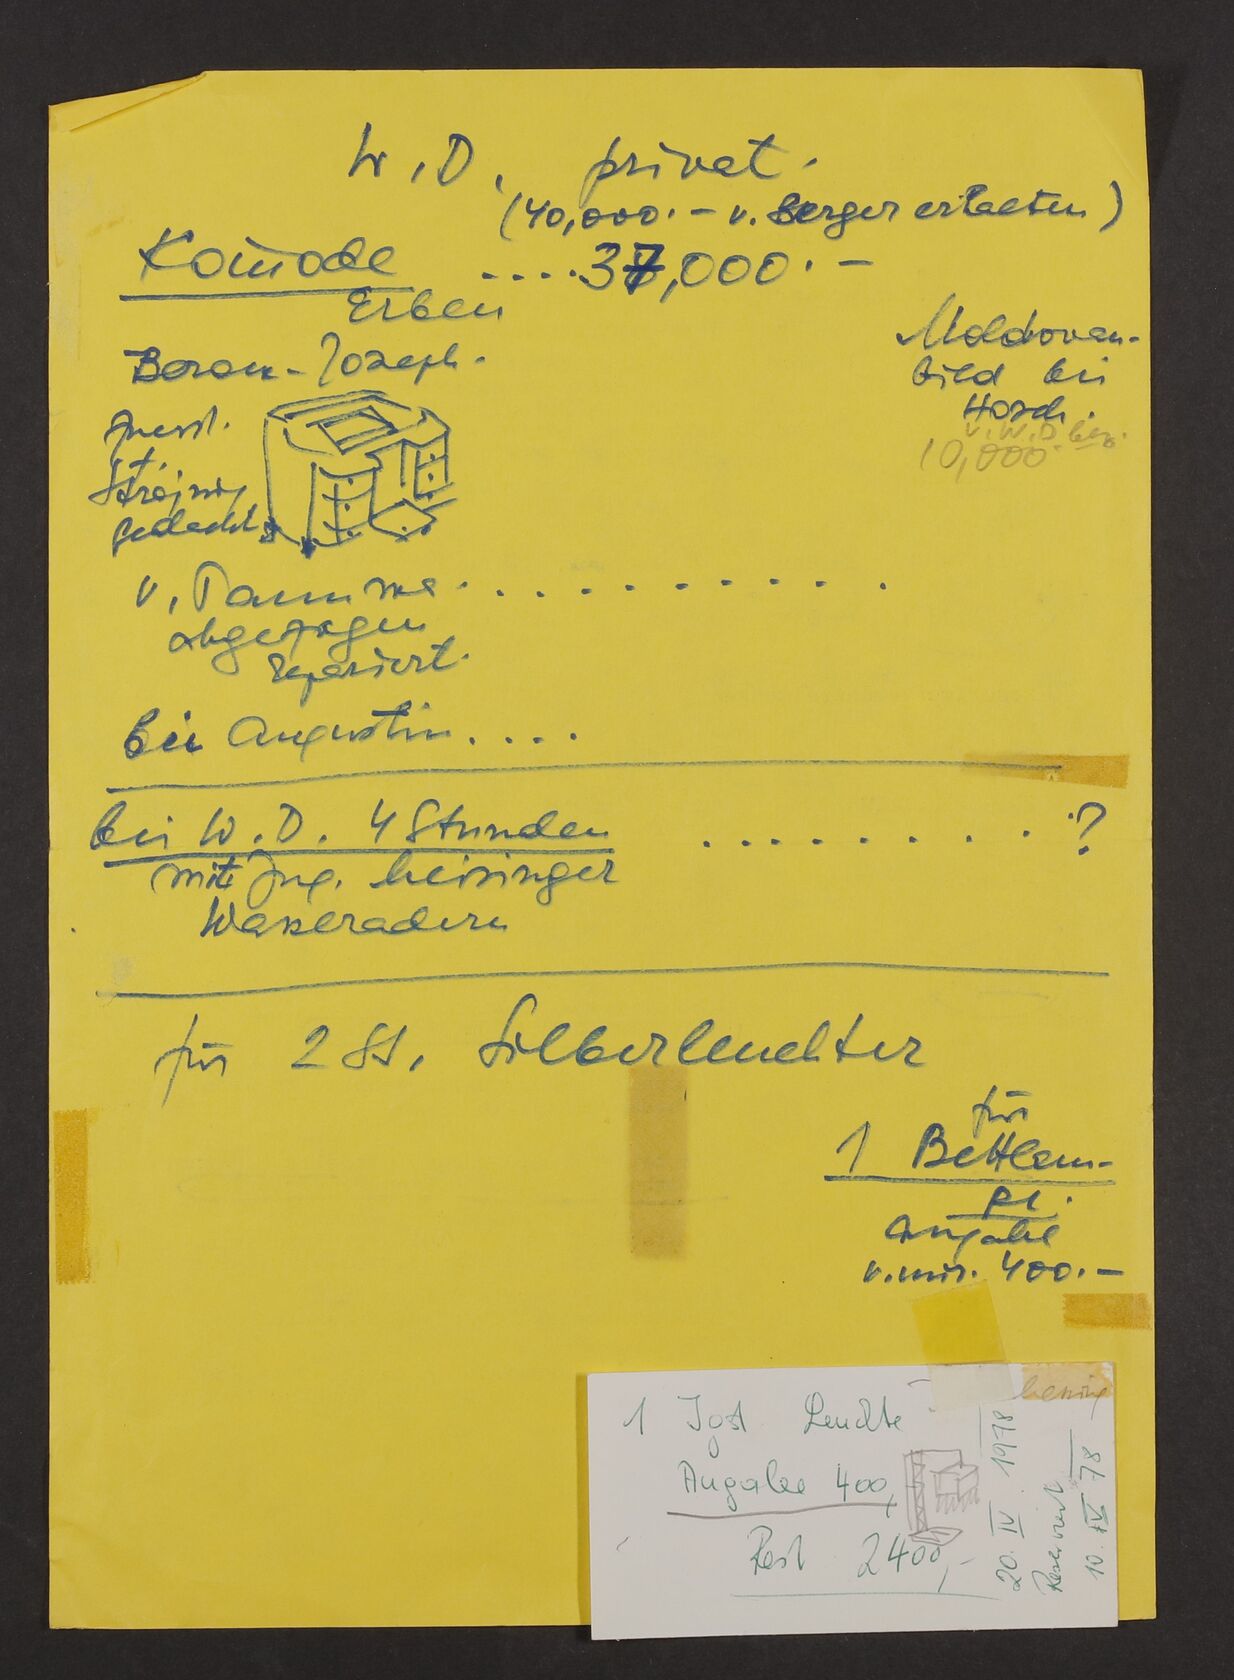 W. D. privat.
(40,000.– v. Berger erhalten)
Komode ....37,000.–
Erben
Barock-Joseph.
Zuerst.
gedacht
Moldovan-
bild bei
Hosch.
v. W. D. bez.
10,000.
v. Pamme. . . . . . . . . . . .
abgezogen
repariert.
bei Augustin....
bei W. D. 4 Stunden . . . . . . . . . ?
mit Ing. heisinger
Wasseradern
für 2 St. Silberleuchter
für
1 Bettlam-
pe.
Angabe
v. mir. 400.–
1 Jgst Leuchte
Angabe 400,
Rest 2400,–
20. IV. 1978
Reserviert
10. IV 78